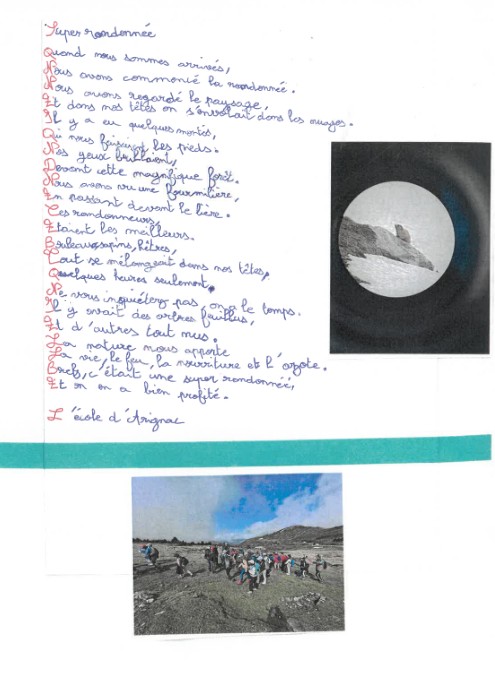 Super randonnée
Quand nous sommes arrivés,
Nous avons commencé la randonnée.
Nous avons regardé le paysage,
Et dans nos têtes on s'envolait dans les nuages.
Il y a eu quelques montés,
Qui nous faisaient les pieds.
Nos yeux brillaient,
Devant cette magnifique forêt.
Nous avons vu une fourmilière,
En passant devant le lierre.
Les randonneurs,
Etaient les meilleurs.
Bouleaux, sapins, hêtres,
Tout se mélangeait dans nos têtes,
Quelques heures seulement,
Ne vous inquiétez pas, on a le temps.
Il y avait des arbres feuillus,
Et d'autres tout nus.
La nature nous apporte
La vie, le feu, la nourriture et l'azote.
Brefs, c'était une super randonnée,
Et on en a bien profité.
L'école d'Arignac